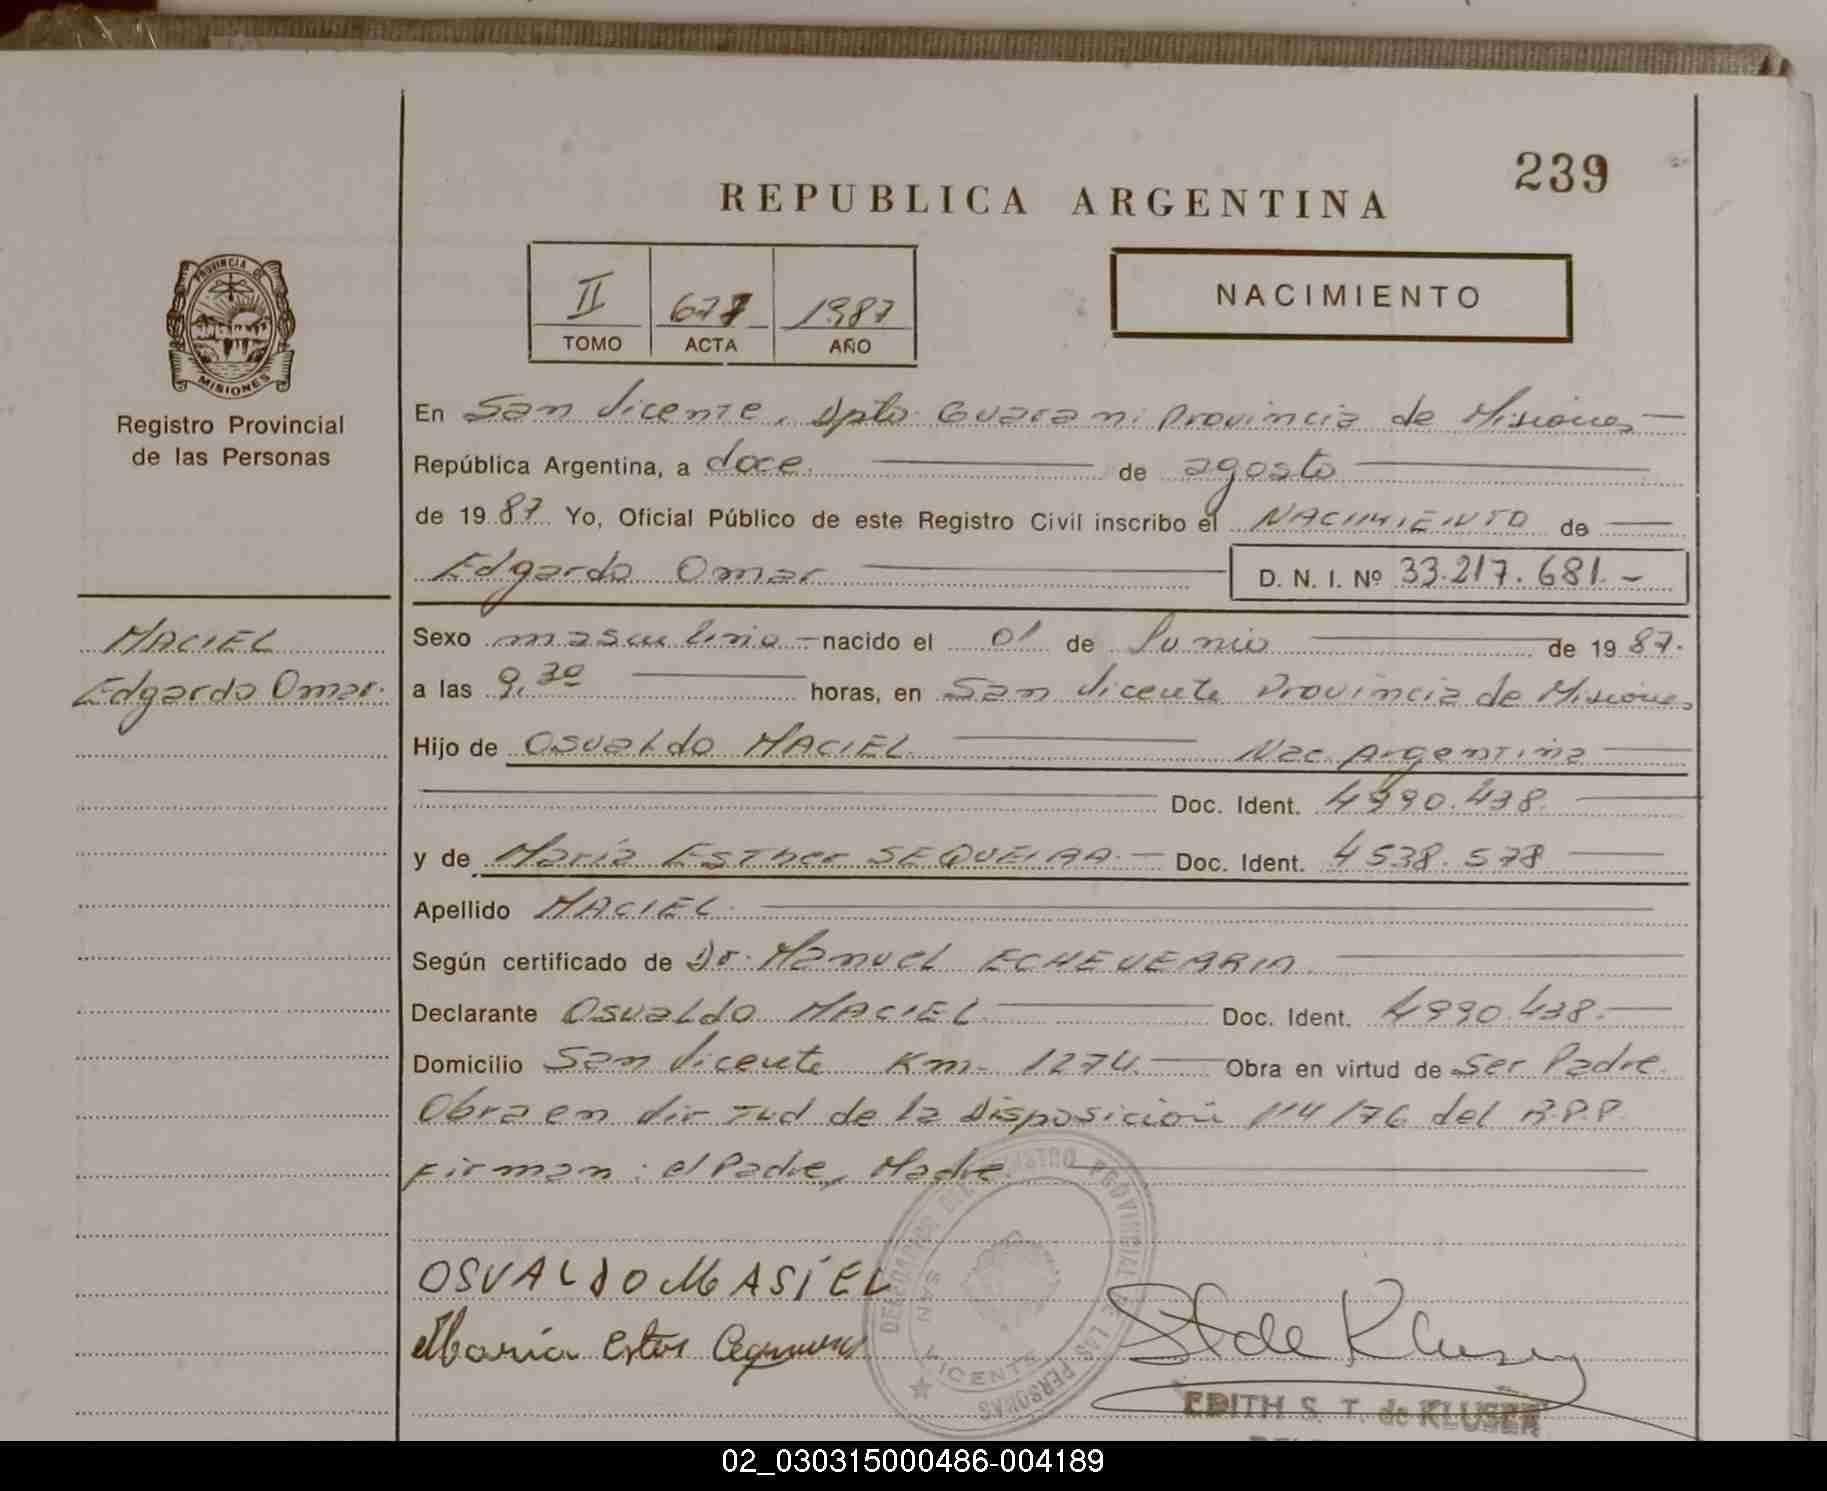 239
REPUBLICA ARGENTINA
II 677 1987
TOMO ACTA AÑO
NACIMIENTO
PROVINCIA DE
MISIONES
Registro Provincial
de las Personas
En San Vicente, Dpto. Guarani Provincia de Misiones
República Argentina, a doce de agosto
de 1987 Yo, Oficial Público de este Registro Civil inscribo el NACIMIENTO de
Edgardo Omar D. N. I. Nº 33.217.681.-
MACIEL
Edgardo Omar.
Sexo masculino - nacido el 01 de Junio de 1987.
a las 9,30 horas, en San Vicente Provincia de Misiones
Hijo de Osvaldo MACIEL Nac. Argentina
Doc. Ident. 4990.438.
y de María Esther SEQUEIRA.- Doc. Ident. 4538.578
Apellido MACIEL.
Según certificado de Dr. Manuel ECHEVERRIA
Declarante Osvaldo MACIEL Doc. Ident. 4990.438.
Domicilio San Vicente Km. 1274. Obra en virtud de ser Padre.
Obra en virtud de la Disposición 114/76 del R.P.P.
firman: el Padre, Madre
OSVALDO MASIEL
María Ester
DEL REGISTRO PROVINCIAL DE LAS PERSONAS
SAN VICENTE
S T de Kluser
EDITH S. T. de KLUSER
02_030315000486-004189